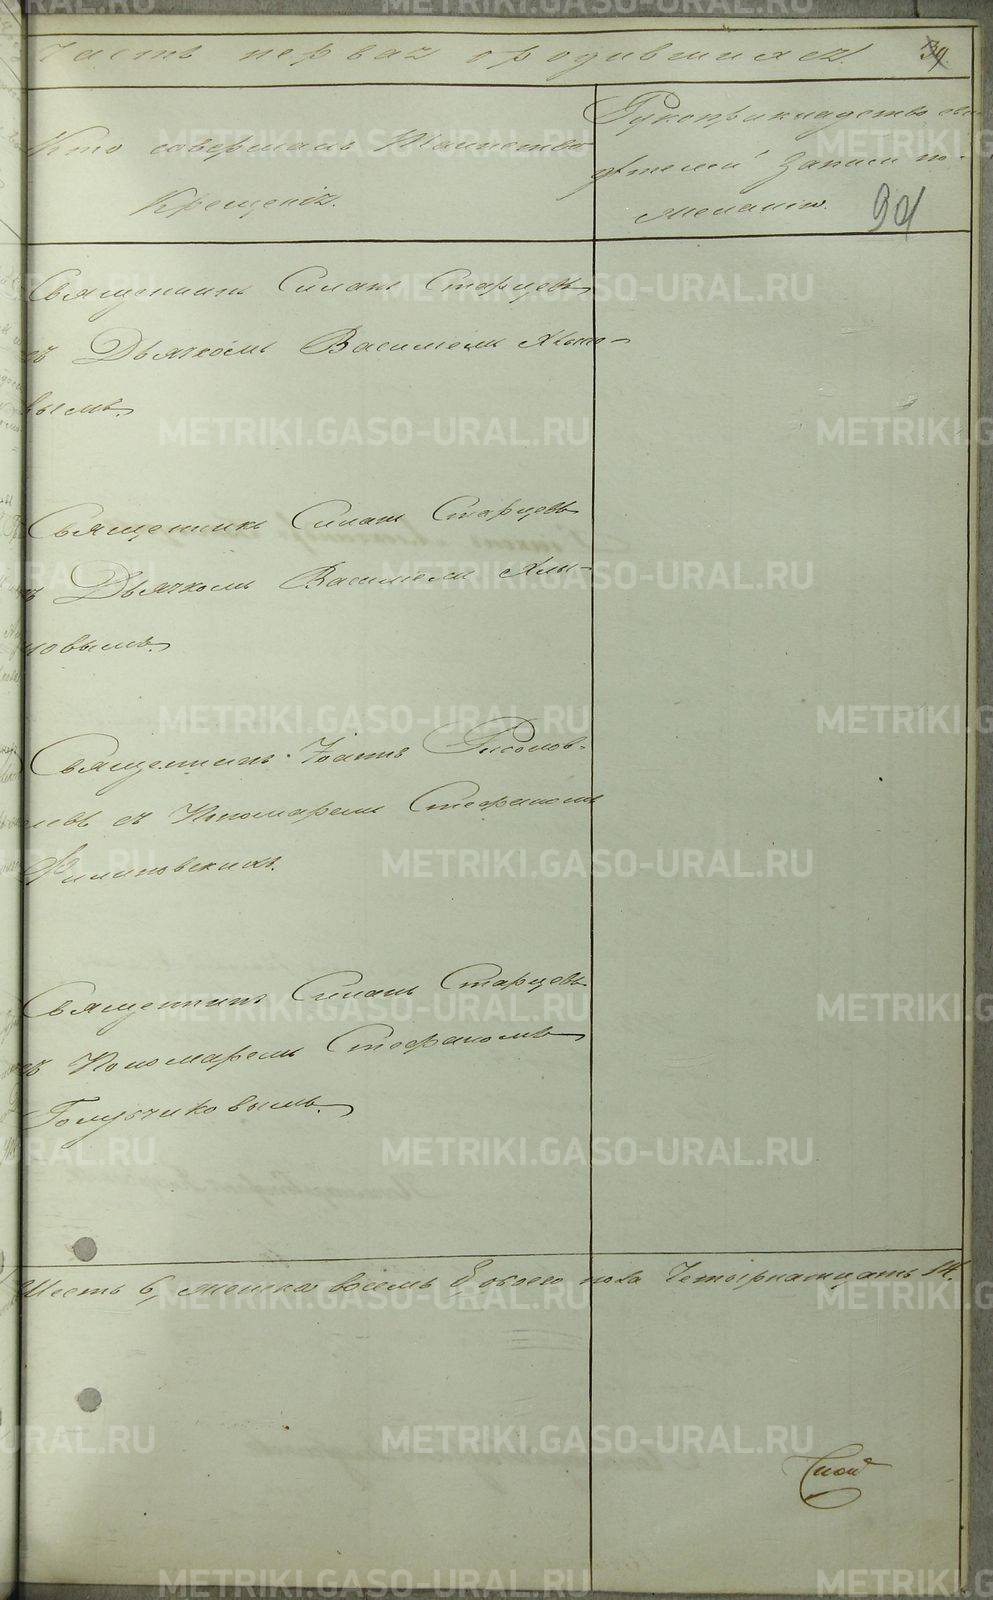 Часть первая о родившихся. 39
Кто совершалъ Таинство
Крещенія.
Рукоприкладство сви-
дѣтелей записи по
желанію.
94
Священникъ Силанъ Старцевъ
съ Дьячкомъ Василіемъ Хлыно-
вымъ.
Священникъ Силанъ Старцевъ
съ Дьячкомъ Василіемъ Хлы-
новымъ.
Священникъ Іоаннъ
съ Пономаремъ Стефаномъ
Священникъ Силанъ Старцевъ
съ Пономаремъ Стефаномъ
Голубчиковымъ.
Шесть 6, женска восемь 8, обоего пола Четырнадцать 14.
METRIKI.GASO-URAL.RU